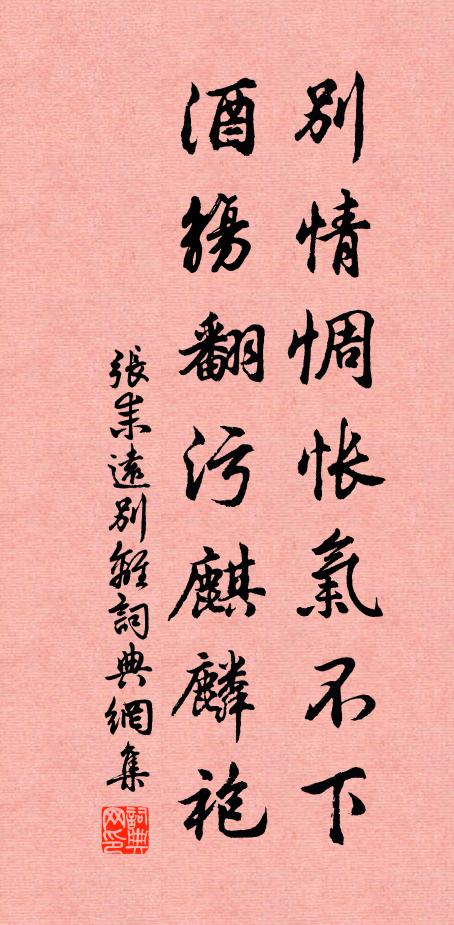 別情惆悵氣不下
酒觴翻污麒麟袍
張耒遠別離詞典網集
詞典网印